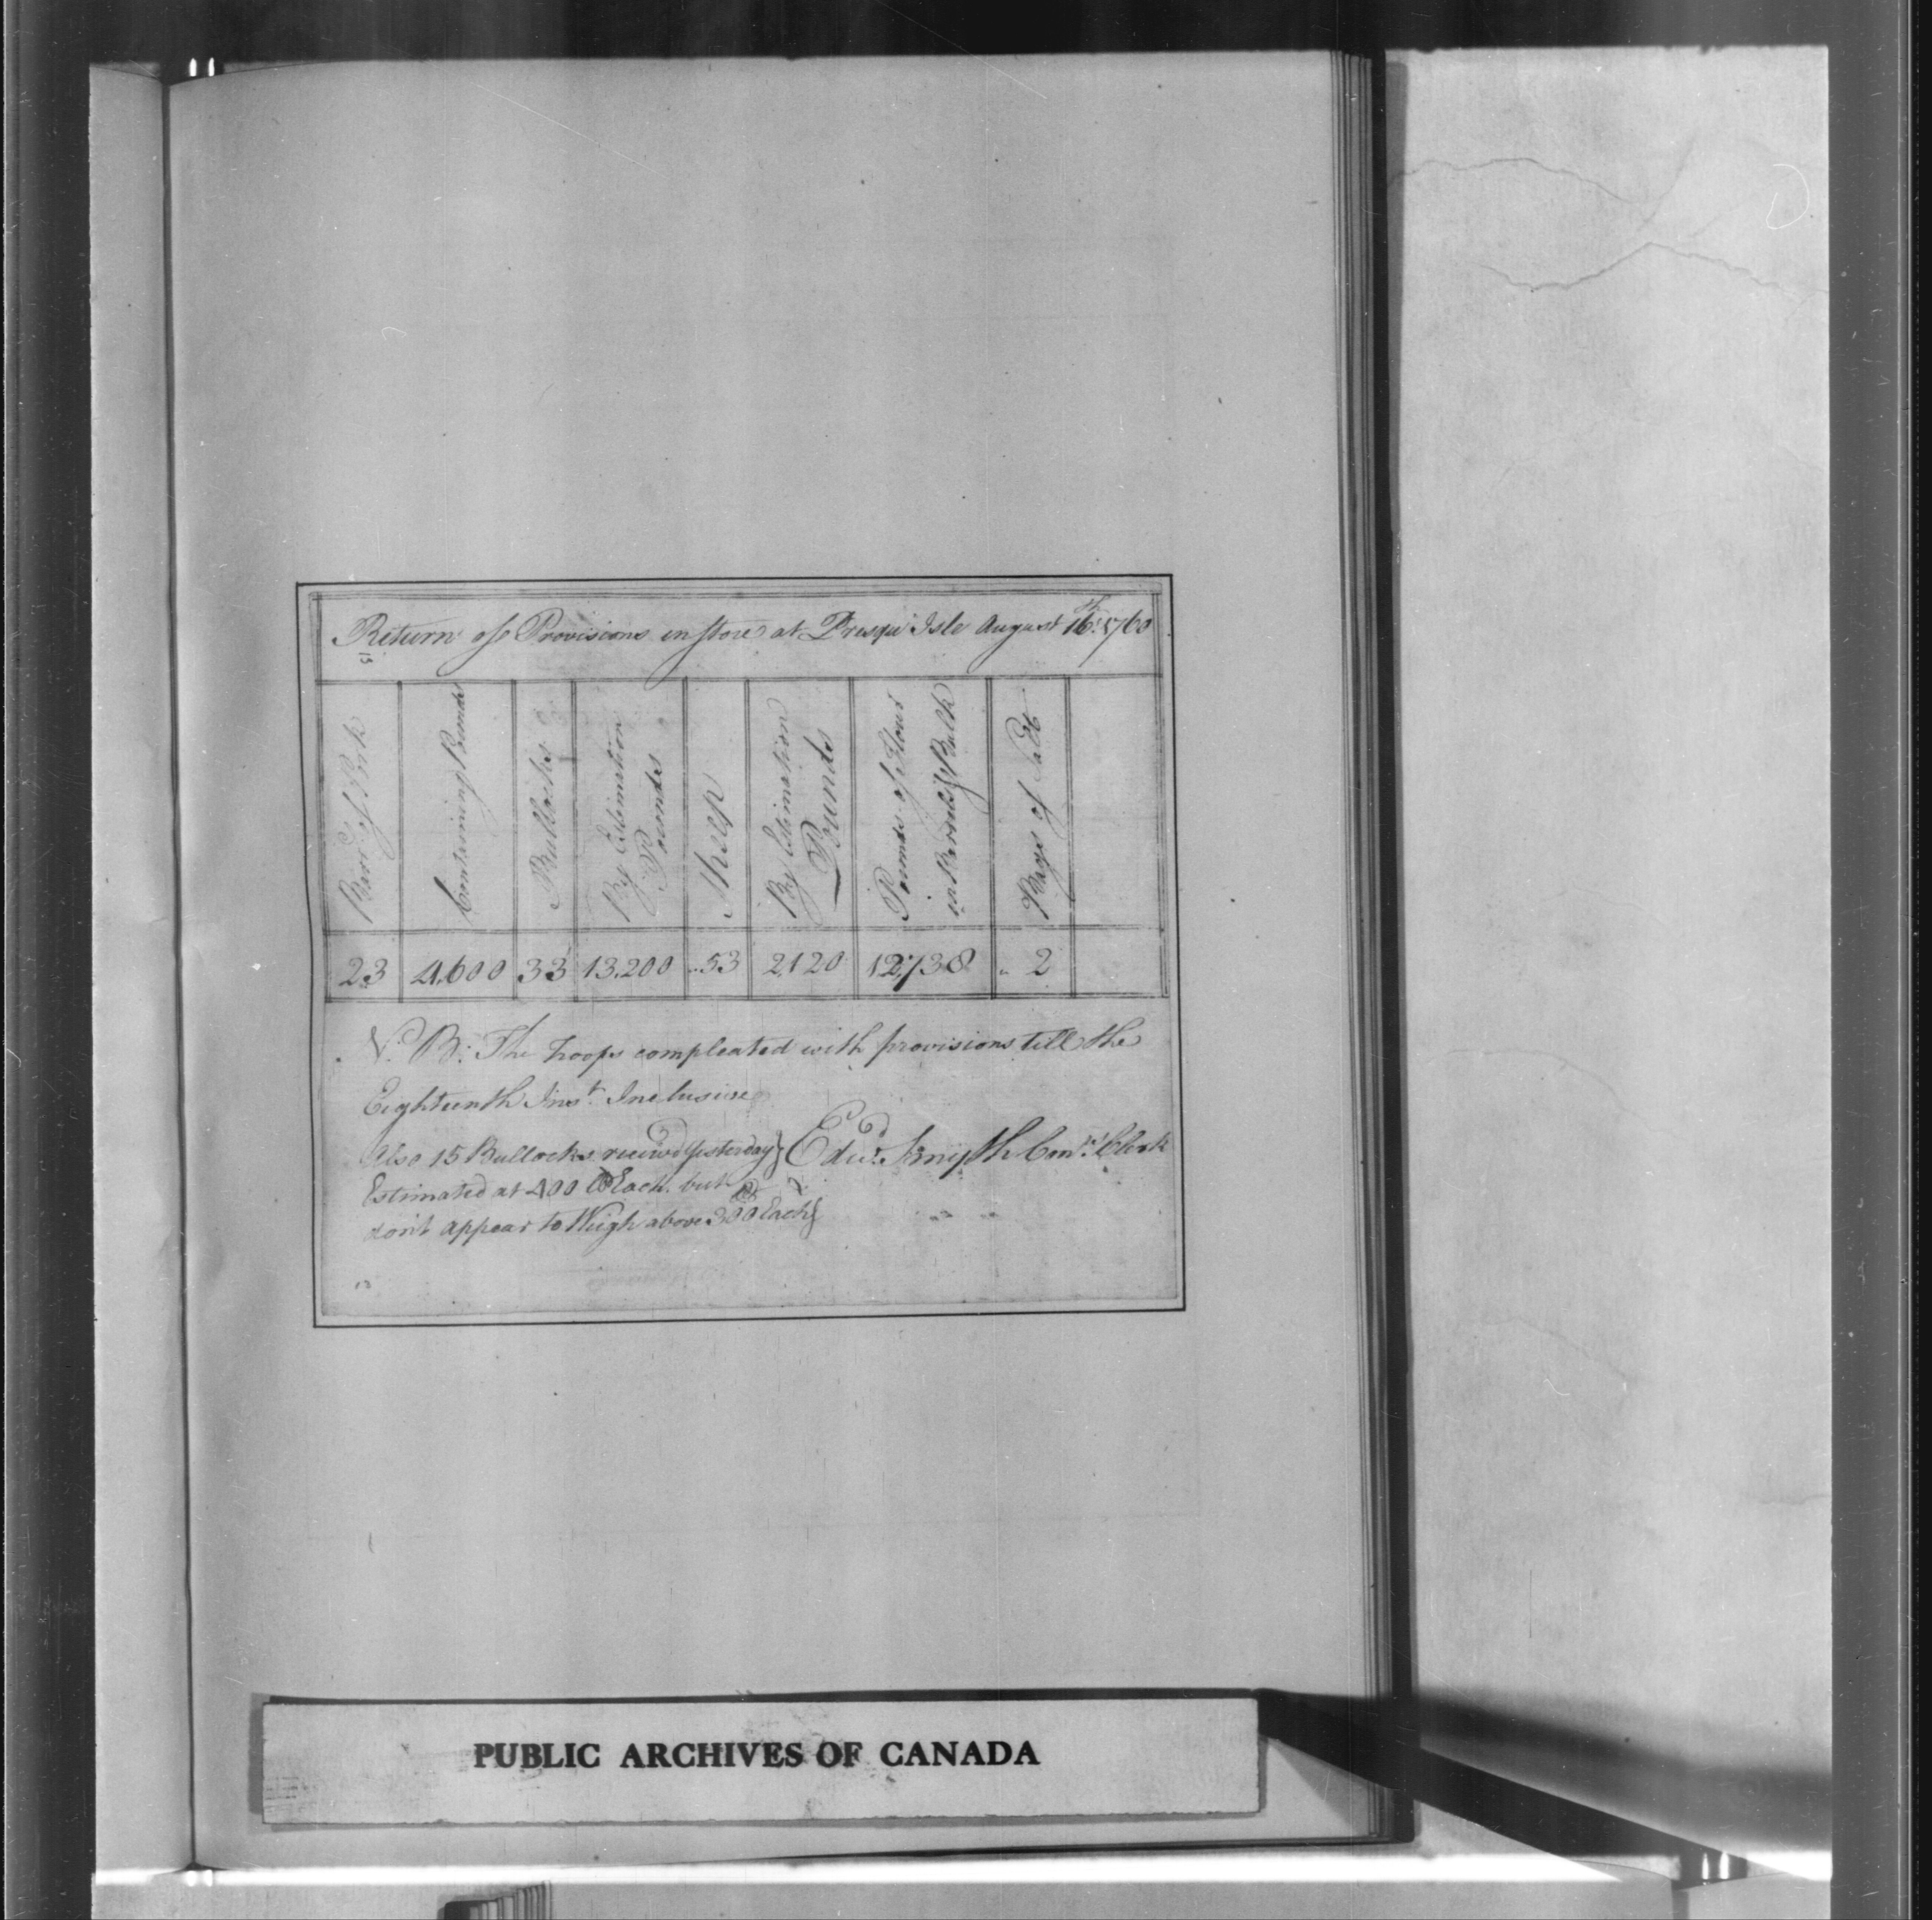 Return of Provisions in store at Presqu' Isle August 16th: 1760
Barrs of Pork
Containing Pounds
Bullocks
By Estimation
Pounds
Sheep
By Estimation
Pounds
Pounds of Flour
in Barrels & Bulk
Bags of Salt
23 4,600 33 13,200 53 2120 12,738 2
N: B: The troops compleated with provisions till the
Eighteenth Inst. Inclusive
Also 15 Bullocks received yesterday } Edwd. Smyth Clerk
Estimated at 400 lb Each. but
don't appear to Weigh above 300 Each }
PUBLIC ARCHIVES OF CANADA